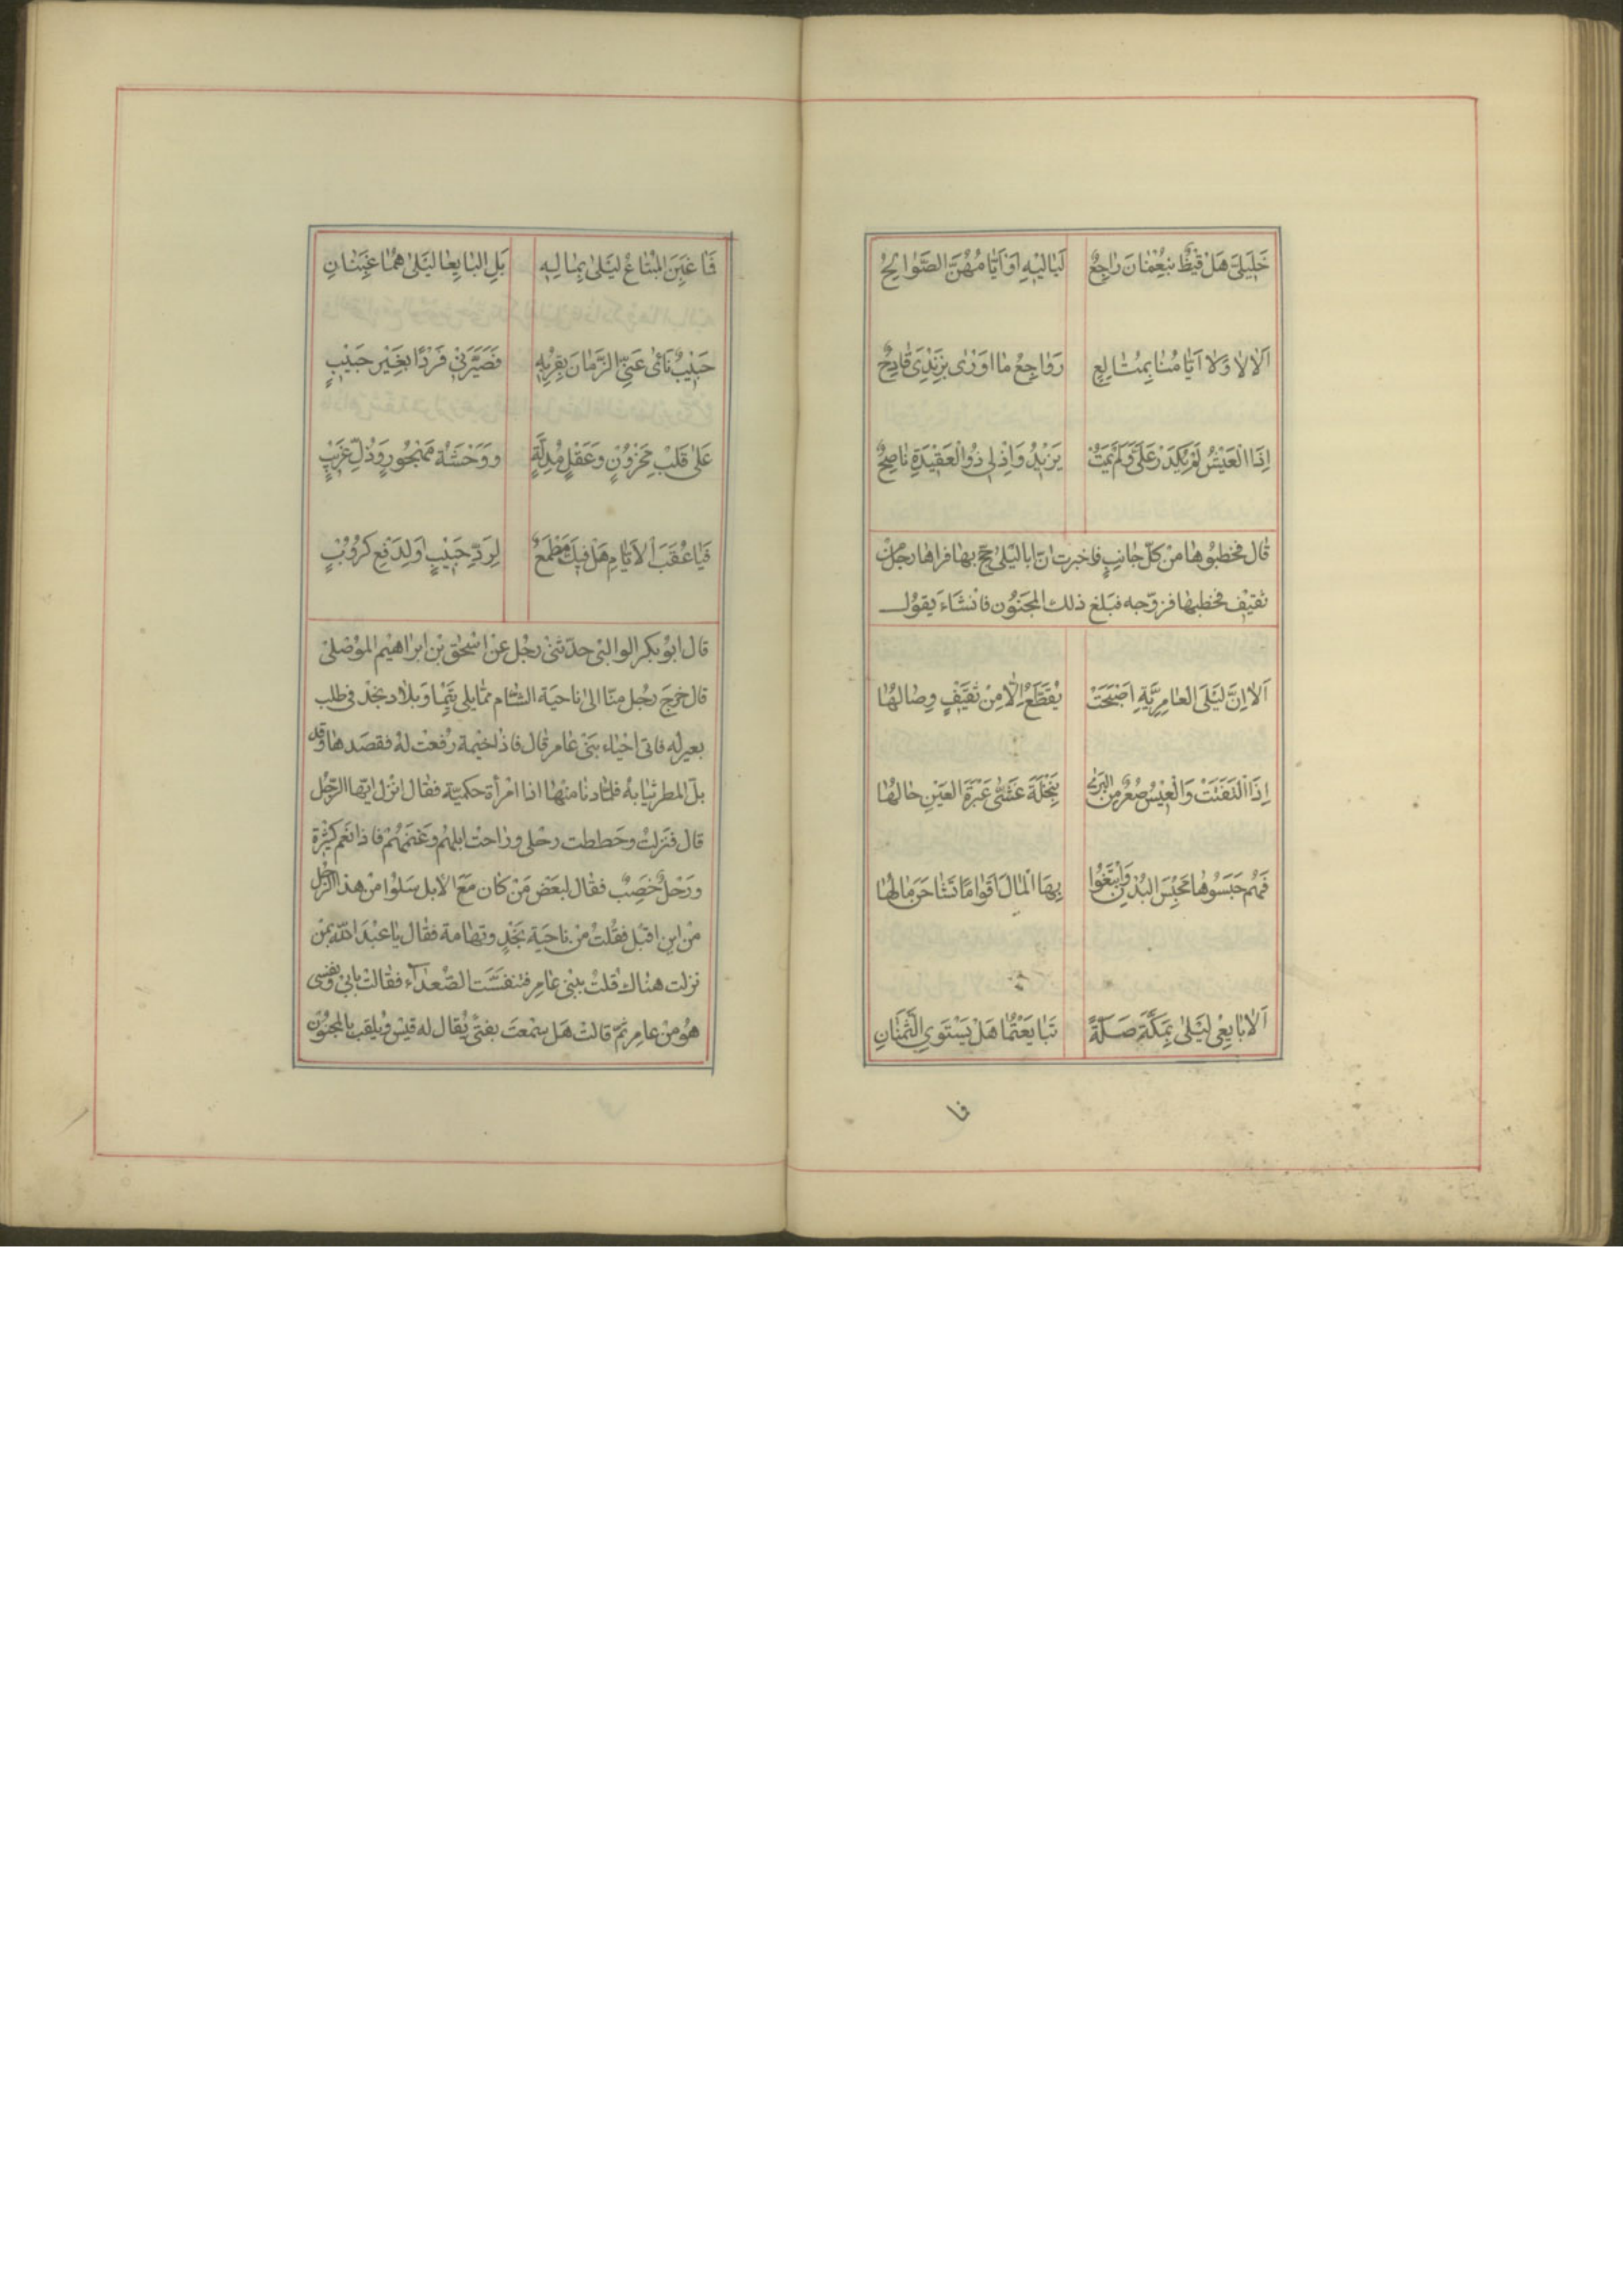 خَلِيلَيَّ هَلْ قَيْظٌ بِنُعْمَانَ رَاجِعٌ لَيَالِيهِ اَوْ اَيَّامُهُنَّ الصَّوَالِحُ
اَلَا لَا وَلَا اَيَّامُنَا بِمُتَالِعٍ رَوَاجِعُ مَا اَوْرَى بِزَنْدَيَّ قَادِحُ
اِذَا الْعَيْشُ لَمْ يَكْدَرْ عَلَيَّ وَلَمْ يَمُتْ يَزِيدُ وَاِذْ لِي ذُو الْعَقِيدَةِ نَاصِحُ
قال فخطبوها من كلّ جانبٍ فاخبرت انّ ابا ليلى حجّ بها فراها رجل من
ثقيف فخطبها فزوّجه فبلغ ذلك المجنون فانشاء يقول
اَلَا اِنَّ لَيْلَى الْعَامِرِيَّةِ اَصْبَحَتْ يُقَطَّعُ اِلَّا مِنْ ثَقِيفٍ وِصَالُهَا
اِذَا الْتَفَتَتْ وَالْعِيسُ صُعْرٌ مِنَ الْبُرَى بِنَخْلَةَ غَشَّى عَبْرَةَ الْعَيْنِ حَالُهَا
فَهُمْ حَبَسُوهَا مَحْبِسَ الْبُدْنِ وَابْتَغُوا بِهَا الْمَالَ اَقْوَامًا تَسَاحَرَ مَالُهَا
اَلَا بَايِعِي لَيْلَى بِمَكَّةَ صَلَّةً تَبَايَعْتُمَا هَلْ يَسْتَوِي الثَّمَنَانِ
فا
فَمَا غُبِنَ الْمُبْتَاعُ لَيْلَى بِمَالِهِ بَلِ الْبَايِعَا لَيْلَى هُمَا غُبِنَانِ
حَبِيبٌ نَائَى عَنِّي الزَّمَانَ بِقُرْبِهِ فَصَيَّرَنِي فَرْدًا بِغَيْرِ حَبِيبٍ
عَلَى قَلْبِ مَحْزُونٍ وَعَقْلٍ مُدِلَّةٍ وَوَحْشَةِ مَهْجُورٍ وَذُلِّ غَرِيبٍ
فَيَا عُقَبَ الْاَيَّامِ هَلْ فِيكَ مَطْمَعٌ لِرَدِّ حَبِيبٍ اَوْ لِدَفْعِ كُرُوبٍ
قال ابو بكر الوالبى حدّثنى رجل عن اسحق بن ابراهيم الموصلى
قال خرج رجل منّا الى ناحية الشام ممّا يلى تيما و بلاد نجد فى طلب
بعير له فاتى احياء بنى عامر قال فاذا خيمة رفعت له فقصدها وقد
بلّ المطر ثيابه فلمّا دنا منها اذا امرأة حكميّة فقال انزل ايّها الرّجل
قال فنزلت وحططت رحلى وراحت ابلهم وغنمهم فاذا نعم كثيرة
ورحلٌ خصبٌ فقال لبعض من كان مع الابل سلوا من هذا الرّجل
من اين اقبل فقلت من ناحية نجد وتهامة فقال يا عبد الله بمن
نزلت هناك قلت ببنى عامر فتنفّست الصّعدآء فقالت بابى ونفسى
هو من عامر ثمّ قالت هل سمعت بفتى يقال له قيس ويلقّب بالمجنون